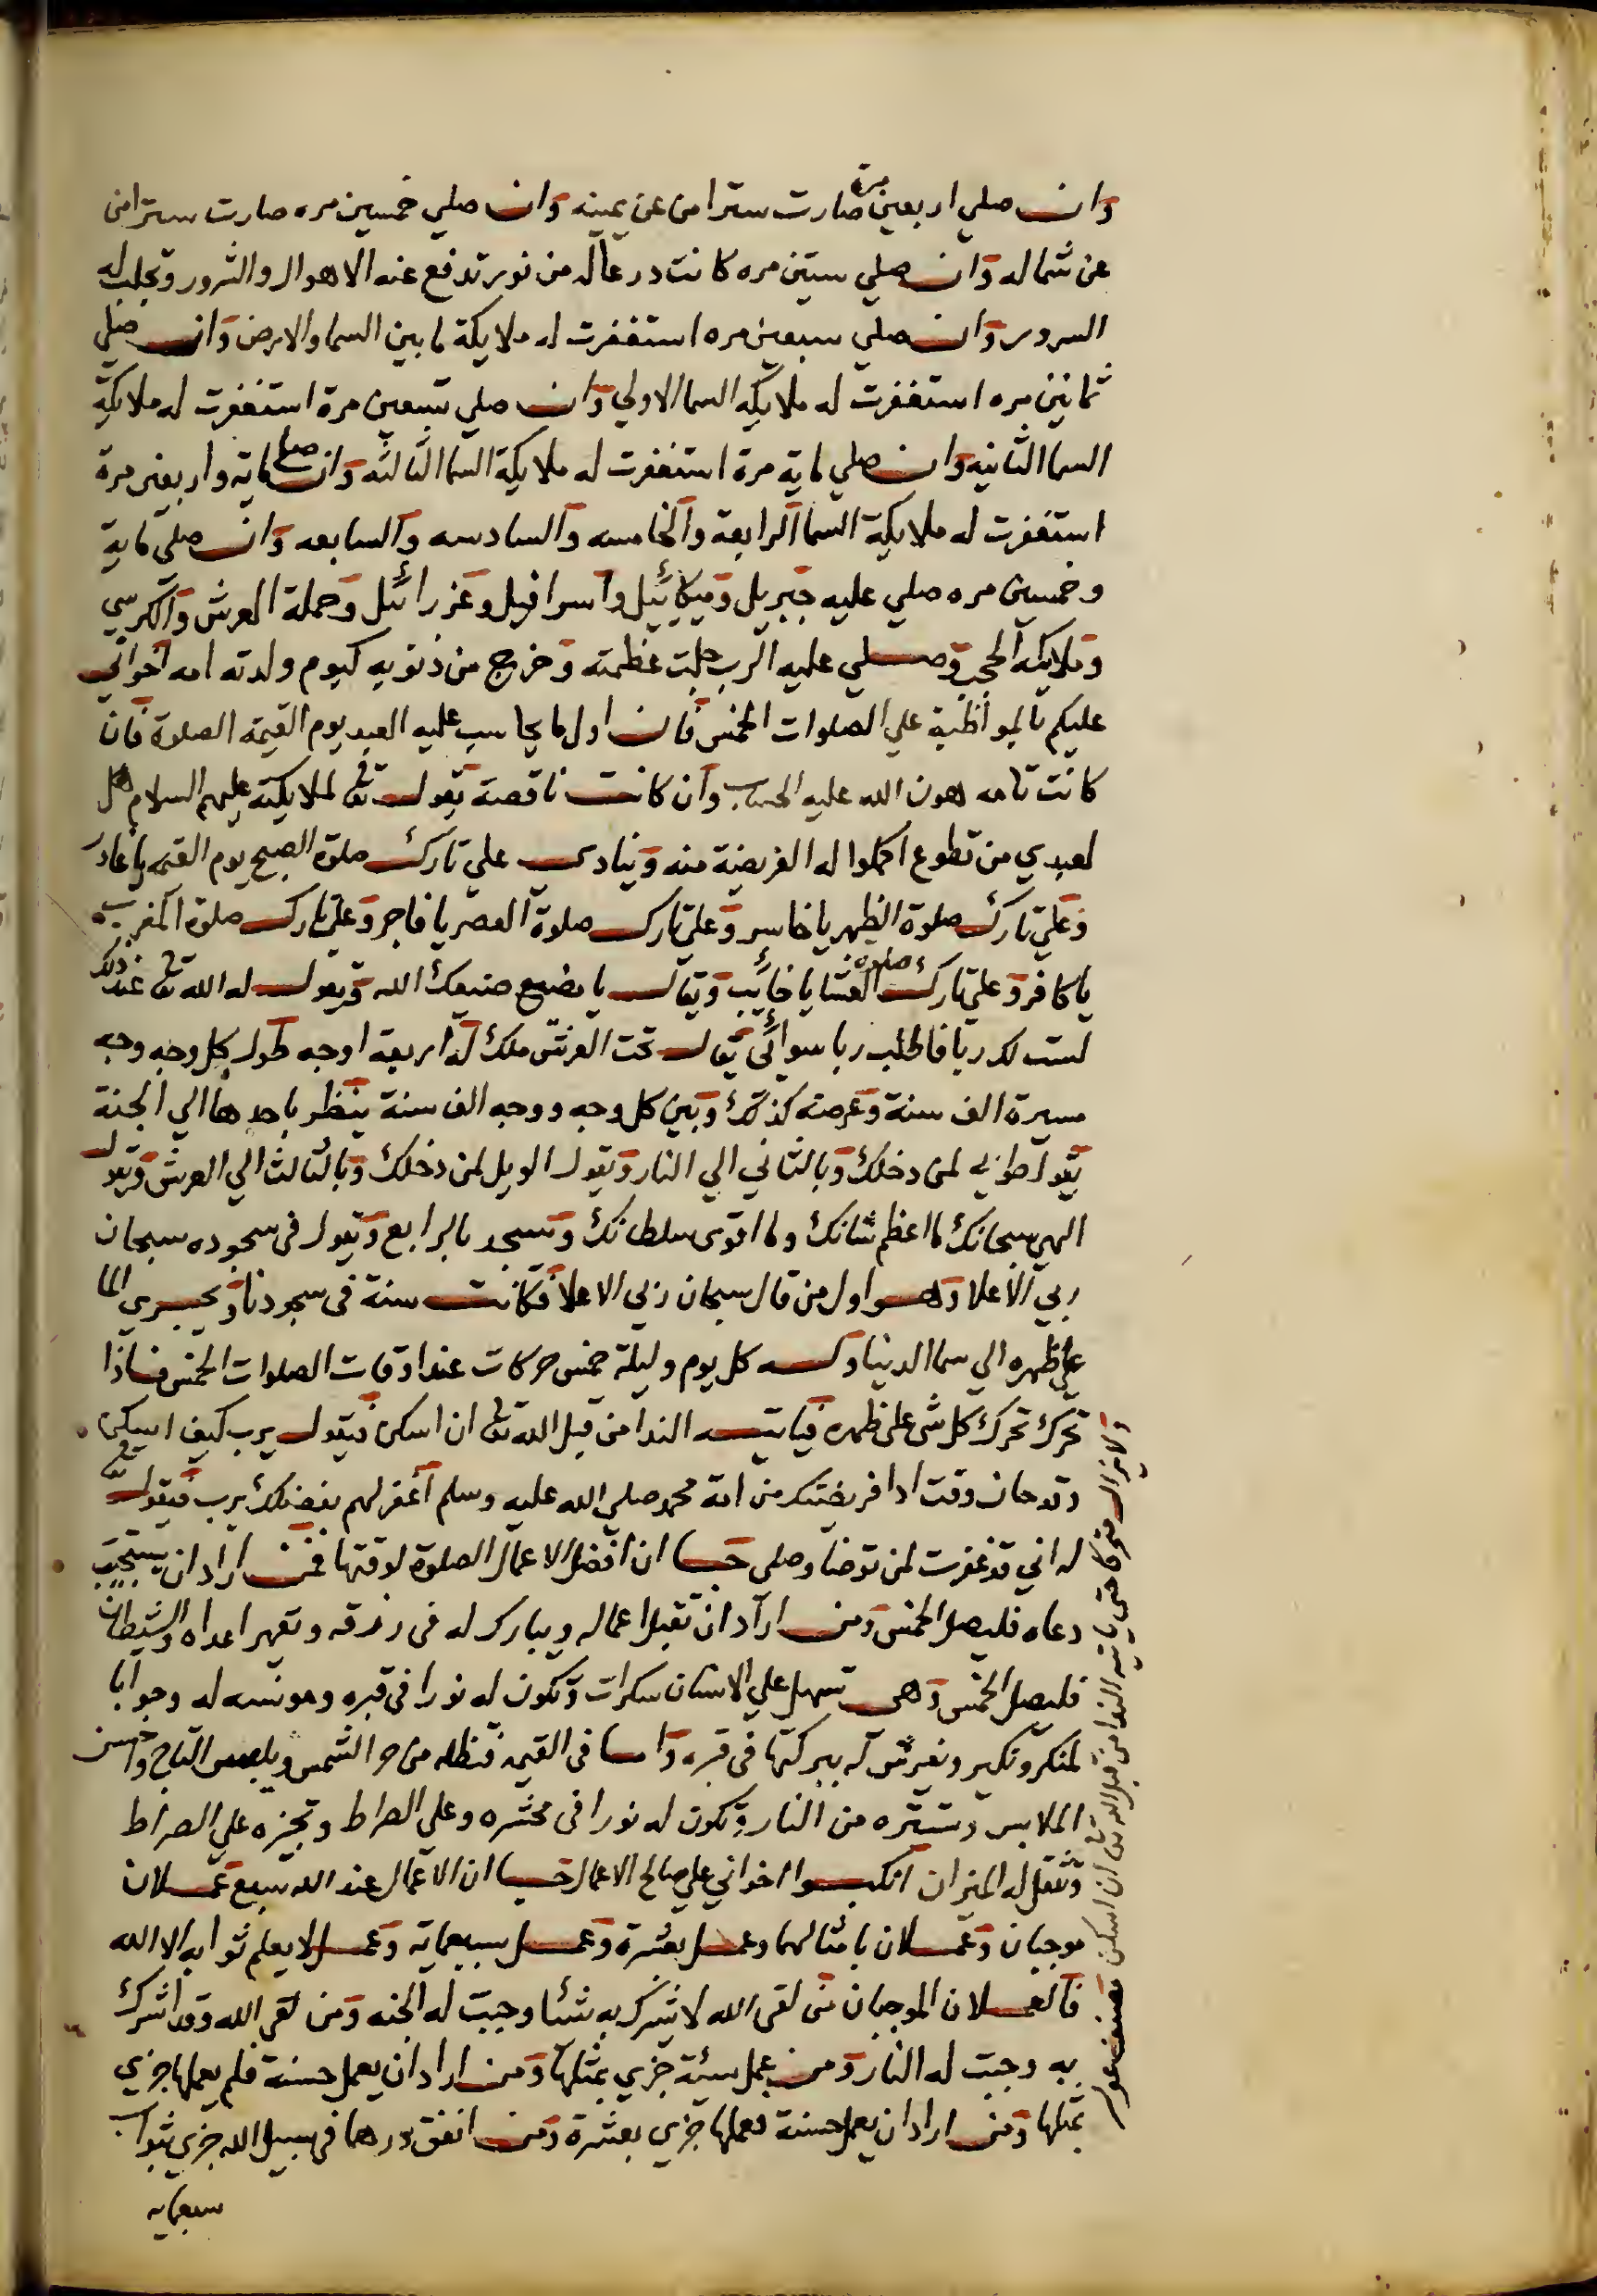 وان صلي اربعين مرة صارت سترا من عن يمينه وان صلي خمسين مره صارت سترا من
عن شماله وان صلي ستين مره كانت درعا له من نور تدفع عنه الاهوال والشرور وتجلب له
السرور وان صلي سبعين مره استغفرت له ملايكة ما بين السما والارض وان صلي
ثمانين مره استغفرت له ملايكه السما الاولي وان صلي تسعين مرة استغفرت له ملايكة
السما الثانيه وان صلي ماية مرة استغفرت له ملايكة السما الثالثه وان صلي ماية واربعين مرة
استغفرت له ملايكة السما الرابعة والخامسه والسادسه والسابعه وان صلي ماية
وخمسين مره صلي عليه جبريل وميكائيل واسرافيل وعزرائيل وحملة العرش والكرسي
وملايكه الحجب وصلي عليه الرب جلت عظمته وخرج من ذنوبه كيوم ولدته امه اخواني
عليكم بالمواظبة علي الصلوات الخمس فان اول ما يحاسب عليه العبد يوم القيمة الصلاة فان
كانت تامه هون الله عليه الحساب وان كانت ناقصة يقول تعالى لملايكته عليهم السلام هل
لعبدي من تطوع اكملوا له الفريضة منه وينادى علي تارك صلوة الصبح يوم القيمه يا غادر
وعلي تارك صلوة الظهر يا خاسر وعلي تارك صلاة العصر يا فاجر وعلي تارك صلوة المغرب
يا كافر وعلي تارك صلوة العشا يا خائب ويقال يا مضيع ضيعك الله ويقول له الله تعالى عند ذلك
لست لك ربا فاطلب ربا سوائي يقال تحت العرش ملك له اربعة اوجه طول كل وجه وجه
مسيرة الف سنة وعرضه كذلك وبين كل وجه ووجه الف سنة ينظر باحدها الي الجنة
يقول طوبي لمن دخلك وبالثاني الي النار ويقول الويل لمن دخلك وبالثالث الي العرش ويقول
الهي سبحانك ما اعظم شانك وما اقوى سلطانك ويسجد بالرابع ويقول في سجوده سبحان
ربي الاعلا وهو اول من قال سبحان ربي الاعلا فكانت سنة في سجودنا ويجري الما
علي ظهره الي سما الدنيا وله كل يوم وليلة خمس حركات عند اوقات الصلوات الخمس فاذا
تحرك تحرك كل شي علي ظهره فياتيه الندا من قبل الله تعالى ان اسكن فيقول يرب كيف اسكن
وقد حان وقت ادا فريضتك من امة محمد صلي الله عليه وسلم اغفر لهم بفضلك يرب فيقول تعالى
له اني قد غفرت لمن توضا وصلي ان افضل الاعمال الصلوة لوقتها فمن اراد ان يستجب
دعاه فليصل الخمس ومن اراد ان تقبل اعماله ويبارك له في رزقه وتقهر اعداه والشيطان
فليصل الخمس وهي تسهل علي الانسان سكرات وتكون له نورا في قبره ومونسه له وجوابا
لمنكر ونكير وتفرش له ببركتها في قبره واما في القيمه فتظله من حر الشمس ويلبس التاج واحسن
الملابس وتستره من النار وتكون له نورا في محشره وعلي الصراط وتجيزه علي الصراط
وتثقل له الميزان انكبوا اخواني علي صالح الاعمال ان الاعمال عند الله سبع عملان
موجبان وعملان بامثالهما وعمل بعشرة وعمل بسبعماية وعمل لا يعلم ثوابه الا الله
فالعملان الموجبان من لقي الله لا يشرك به شئا وجبت له الجنه ومن لقي الله وقد اشرك
به وجبت له النار ومن عمل سيئة جزي بمثلها ومن اراد ان يعمل حسنة فلم يعملها جزي
بمثلها ومن اراد ان يعمل حسنة فعملها جزي بعشرة ومن انفق درهما في سبيل الله جزي بثواب
سبعمايه
ولا يزال متحركا حتي ياتيه الندا من قبل الله تعالى ان اسكن